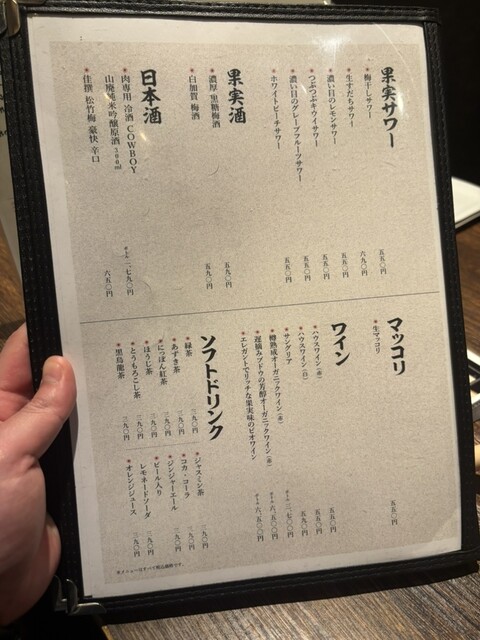 果実サワー
梅干しサワー 五五〇円
生すだちサワー 六九〇円
濃い目のレモンサワー 五五〇円
つぶつぶキウイサワー 五五〇円
濃い目のグレープフルーツサワー 五五〇円
ホワイトピーチサワー 五五〇円
果実酒
濃厚 黒糖梅酒 五九〇円
白加賀 梅酒 五九〇円
日本酒
肉専用 冷酒 COWBOY
山廃純米吟醸原酒 300ml ボトル 二、七九〇円
佳撰 松竹梅 豪快 辛口 六五〇円
マッコリ
生マッコリ 五五〇円
ワイン
ハウスワイン(赤) 五五〇円
ハウスワイン(白) 五五〇円
サングリア 五九〇円
樽熟成オーガニックワイン(赤)
遅摘みブドウの芳醇オーガニックワイン(赤)
エレガントでリッチな果実味のビオワイン
ソフトドリンク
緑茶 三九〇円
あずき茶 三九〇円
にっぽん紅茶 三九〇円
ほうじ茶 三九〇円
とうもろこし茶 三九〇円
黒烏龍茶 三九〇円
ジャスミン茶 三九〇円
コカ・コーラ 三九〇円
ジンジャーエール 三九〇円
ビール入り
レモネードソーダ 三九〇円
オレンジジュース 三九〇円
※メニューはすべて税込価格です。